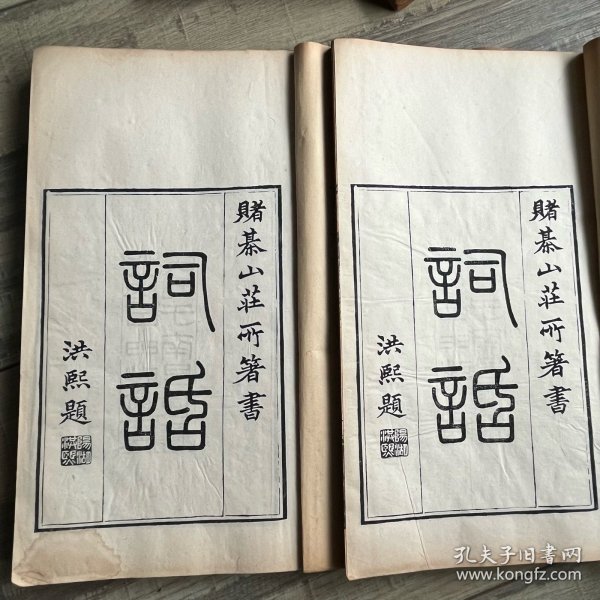 賭棊山莊所箸書
詞話
洪熙題
陽湖洪熙
賭棊山莊所箸書
詞話
洪熙題
陽湖洪熙
孔夫子旧书网
www.kongfz.com